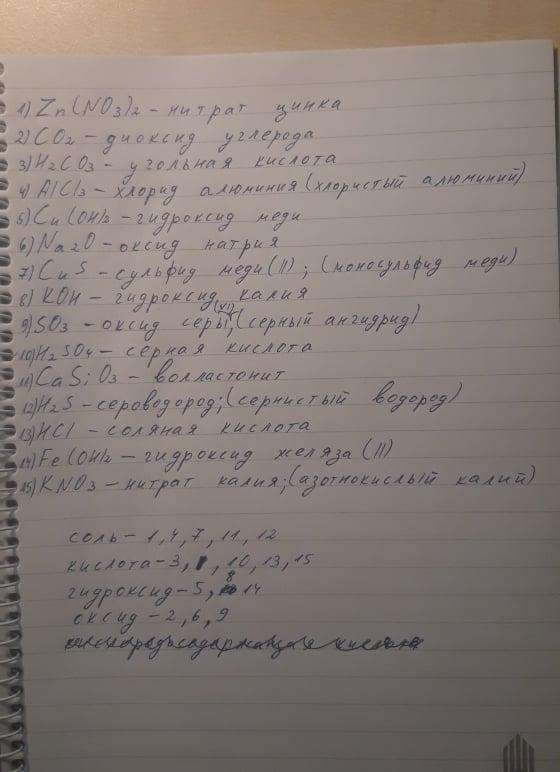 1) Zn(NO3)2 – нитрат цинка
2) CO2 – диоксид углерода
3) H2CO3 – угольная кислота
4) AlCl3 – хлорид алюминия (хлористый алюминий)
5) Cu(OH)2 – гидроксид меди
6) Na2O – оксид натрия
7) CuS – сульфид меди (II) ; (моносульфид меди)
8) KOH – гидроксид калия
9) SO3 – оксид серы (VI); (серный ангидрид)
10) H2SO4 – серная кислота
11) CaSiO3 – волластонит
12) H2S – сероводород; (сернистый водород)
13) HCl – соляная кислота
14) Fe(OH)2 – гидроксид железа (II)
15) KNO3 – нитрат калия; (азотнокислый калий)
соль – 1, 4, 7, 11, 12
кислота – 3, , 10, 13, 15
гидроксид – 5, 8 14
оксид – 2, 6, 9